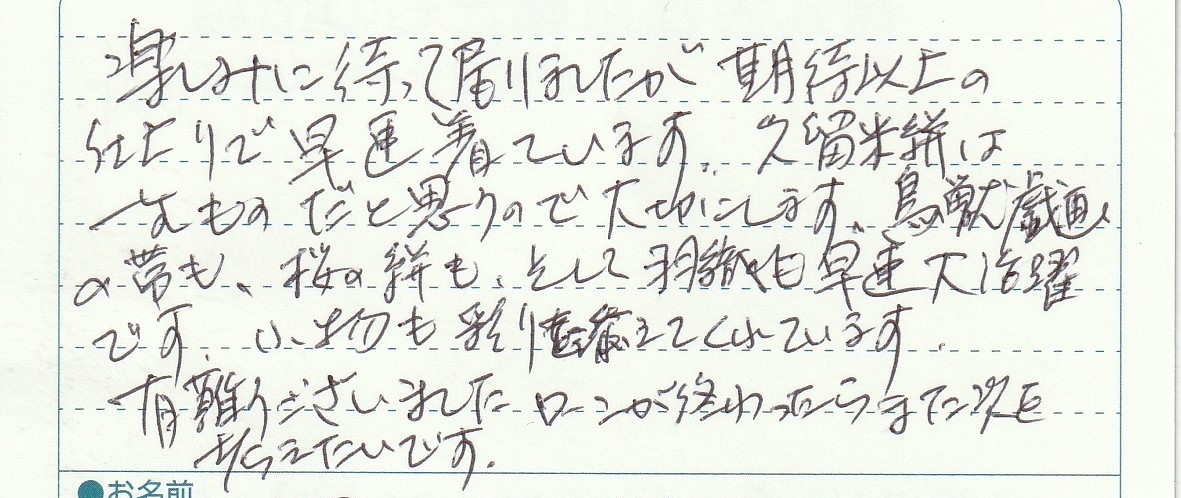 楽しみに待って居りましたが 期待以上の
仕上りで早速着ています。久留米絣は
一生もの だと思うので大切にします。鳥獣戯画
の帯も、桜の絣も、そして羽織も早速大活躍
です。小物も彩りを添えてくれています。
有難うございました ローンが終わったらまた次を
考えたいです。
●お名前